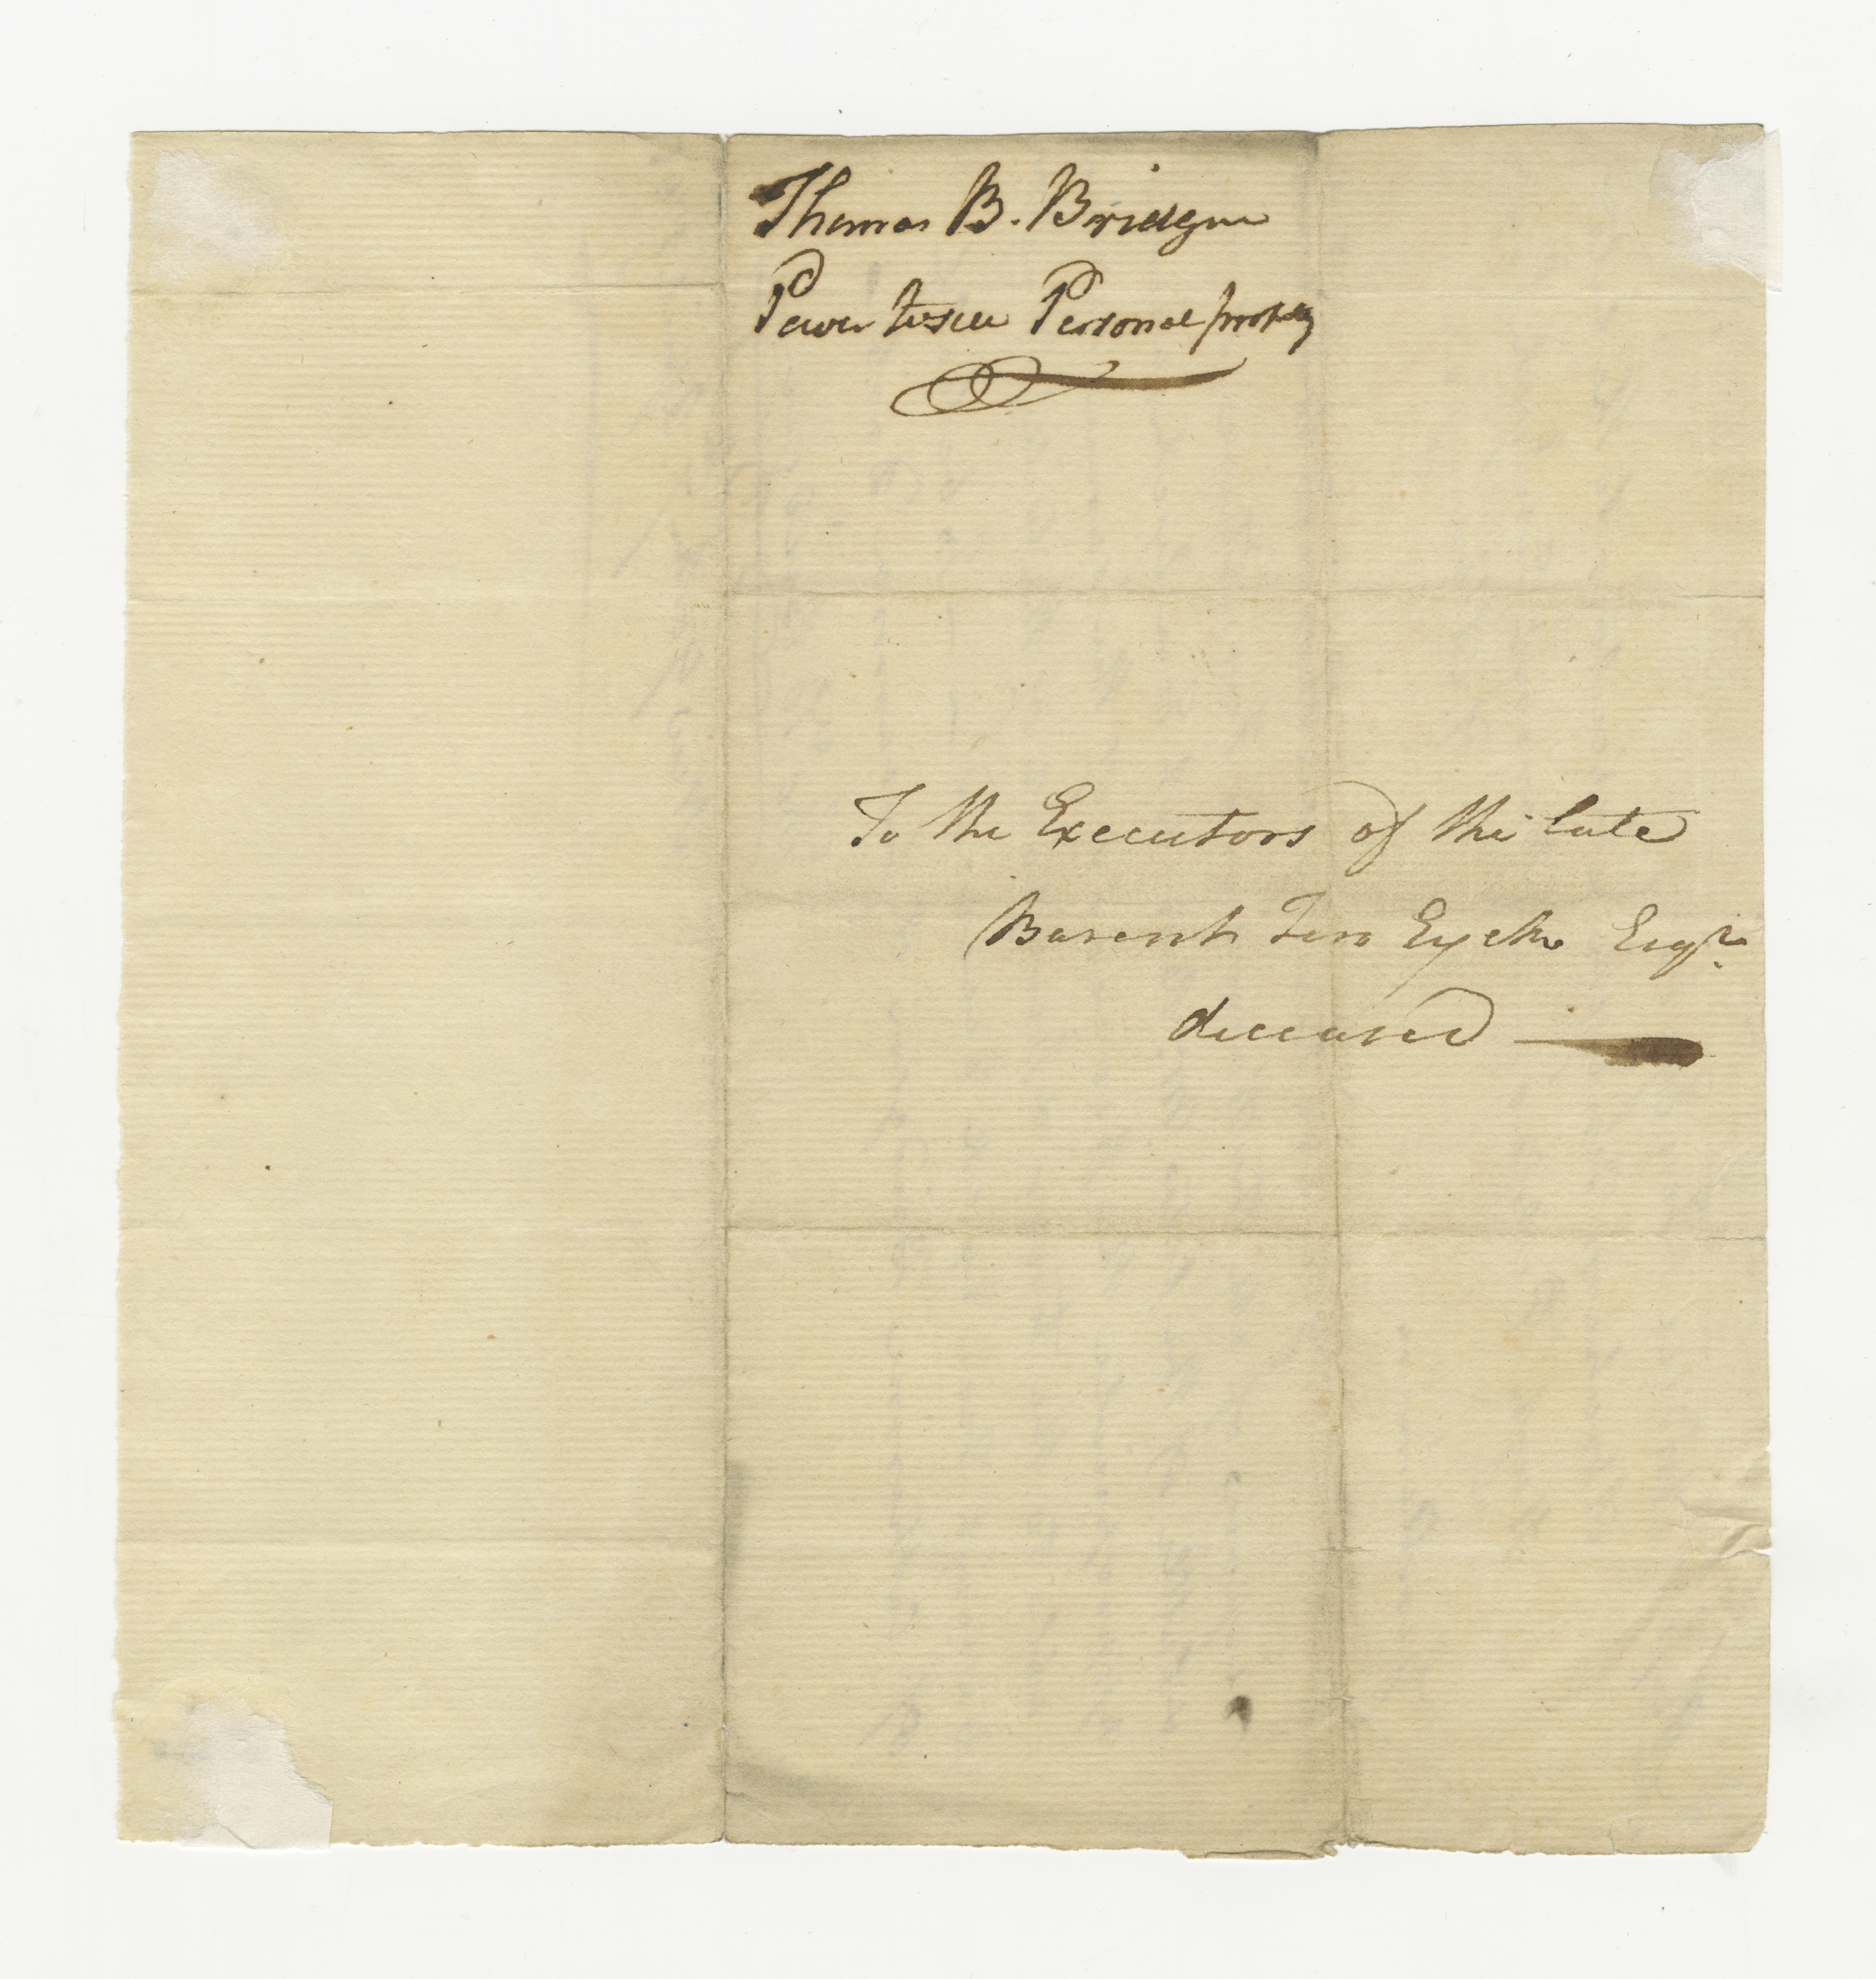 Thomas B. Bridgen
Power to sell Personal property
To the Executors of the late
Barent Ten Eyck Esqr.
deceased